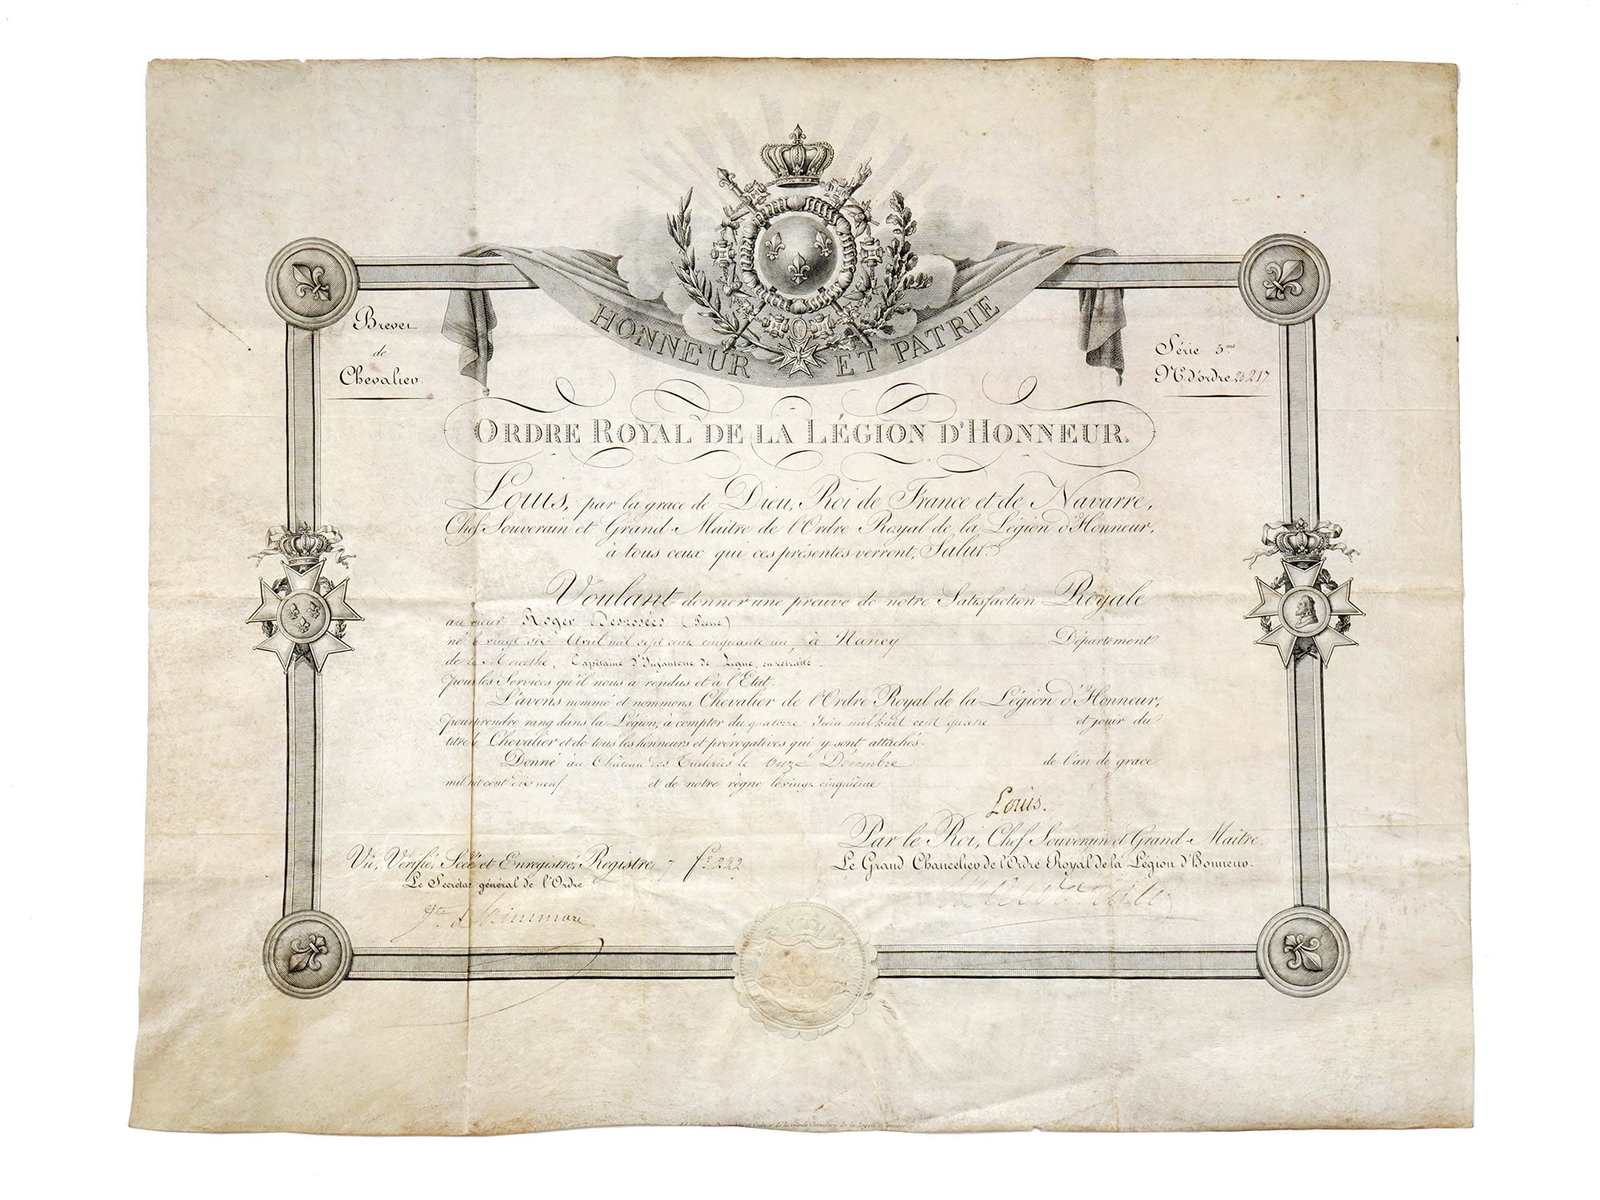 HONNEUR ET PATRIE
Brevet
de
Chevalier.
Série 5.me
N.o d'ordre 20217
ORDRE ROYAL DE LA LÉGION D'HONNEUR.
Louis, par la grace de Dieu, Roi de France et de Navarre,
Chef Souverain et Grand-Maître de l'Ordre Royal de la Légion d'Honneur,
à tous ceux qui ces présentes verront, Salut.
Voulant donner une preuve de notre Satisfaction Royale
au sieur Roger Desrosées (Pierre)
né le vingt six Avril mil sept cent cinquante un, à Nancy Département
de la Meurthe, Capitaine d'Infanterie de Ligne, en retraite.
pour les Services qu'il nous a rendus et à l'Etat.
L'avons nommé et nommons Chevalier de l'Ordre Royal de la Légion d'Honneur,
pour prendre rang dans la Légion, à compter du quatorze Juin mil huit cent quatre et jouir du
titre de Chevalier et de tous les honneurs et prérogatives qui y sont attachés.
Donné au Château des Tuileries le Onze Décembre de l'an de grace
mil huit cent dix neuf et de notre règne le vingt cinquième
Louis.
Par le Roi, Chef Souverain et Grand-Maître.
Le Grand Chancelier de l'Ordre Royal de la Légion d'Honneur.
Vu, Vérifié, Scellé et Enregistré, Registre 7 f.o 222
Le Secrétaire général de l'Ordre